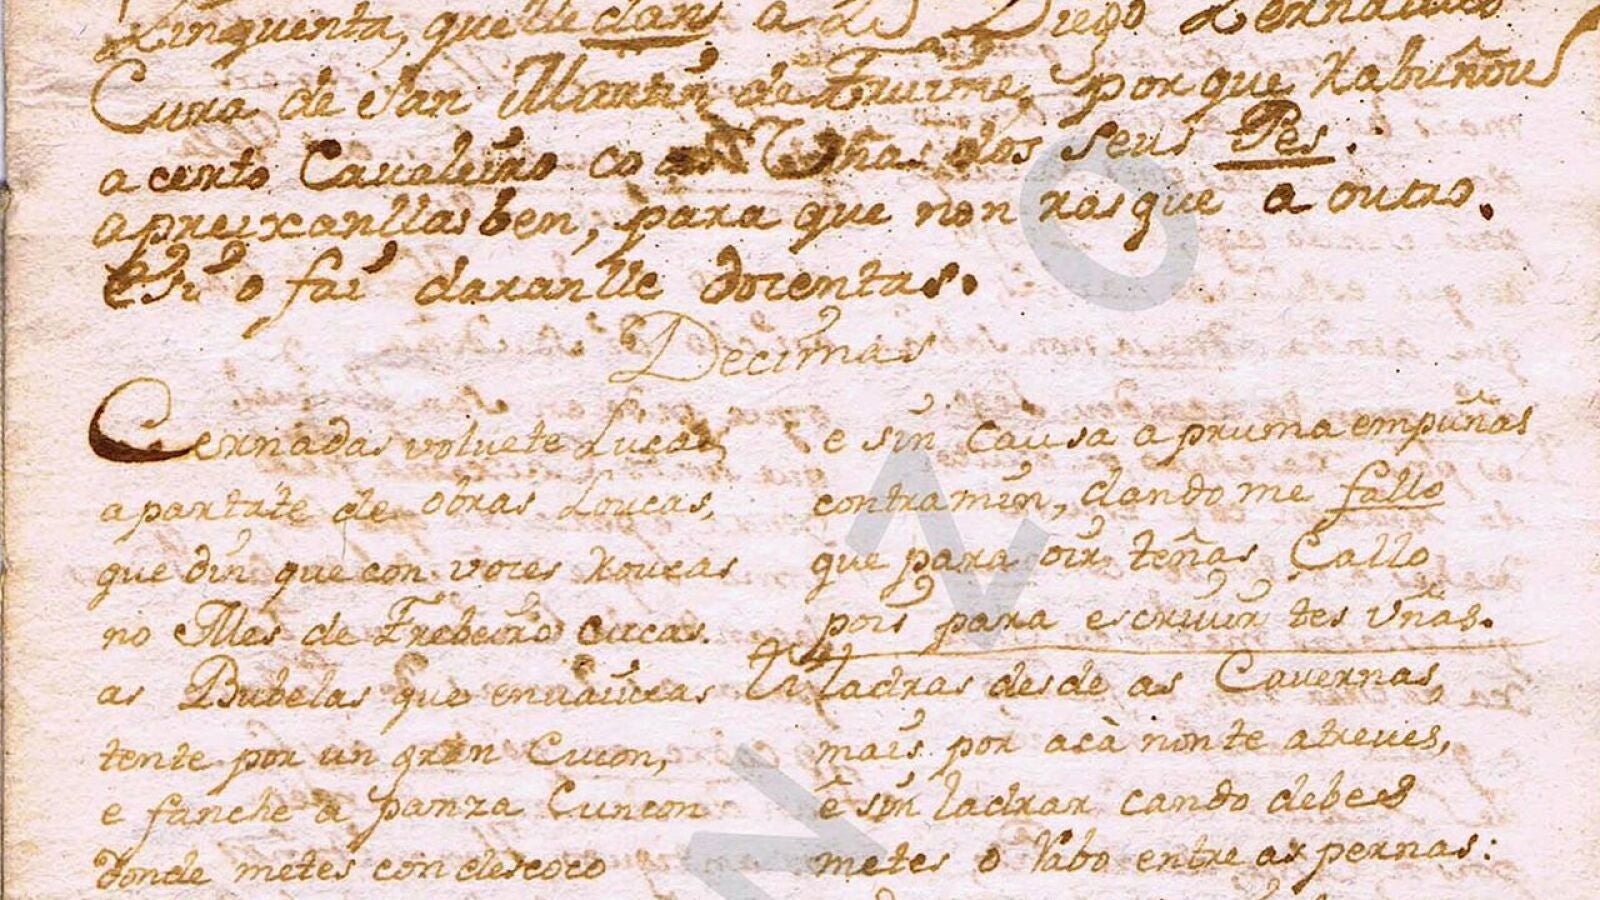 Zinquenta, que lle dan a D. Diego Zernadas
Cura de San Martin de Fruime, porque Rabuñou
a certo Caualeiro co as Uñas dos seus Pes.
apreixanllas ben, para que non rasque a outro.
e si o fai daranlle docientas.
Decimas
Cernadas voluete Lucas,
apartate de obras Loucas,
que din que con voces Roucas
no Mes de Frebeiro cucas.
as Bubelas que
tente por un gran Cucon,
e fanche a panza Cuncon
donde metes con descoco
e sin causa a pruma empuñas
contra min, dando me fallo
que para oir teñas Callo
pois para escriuir tes vñas.
ladras desde as Cauernas,
mais por acà non te atreues,
è sin ladrar cando debes
metes o Rabo entre as pernas: